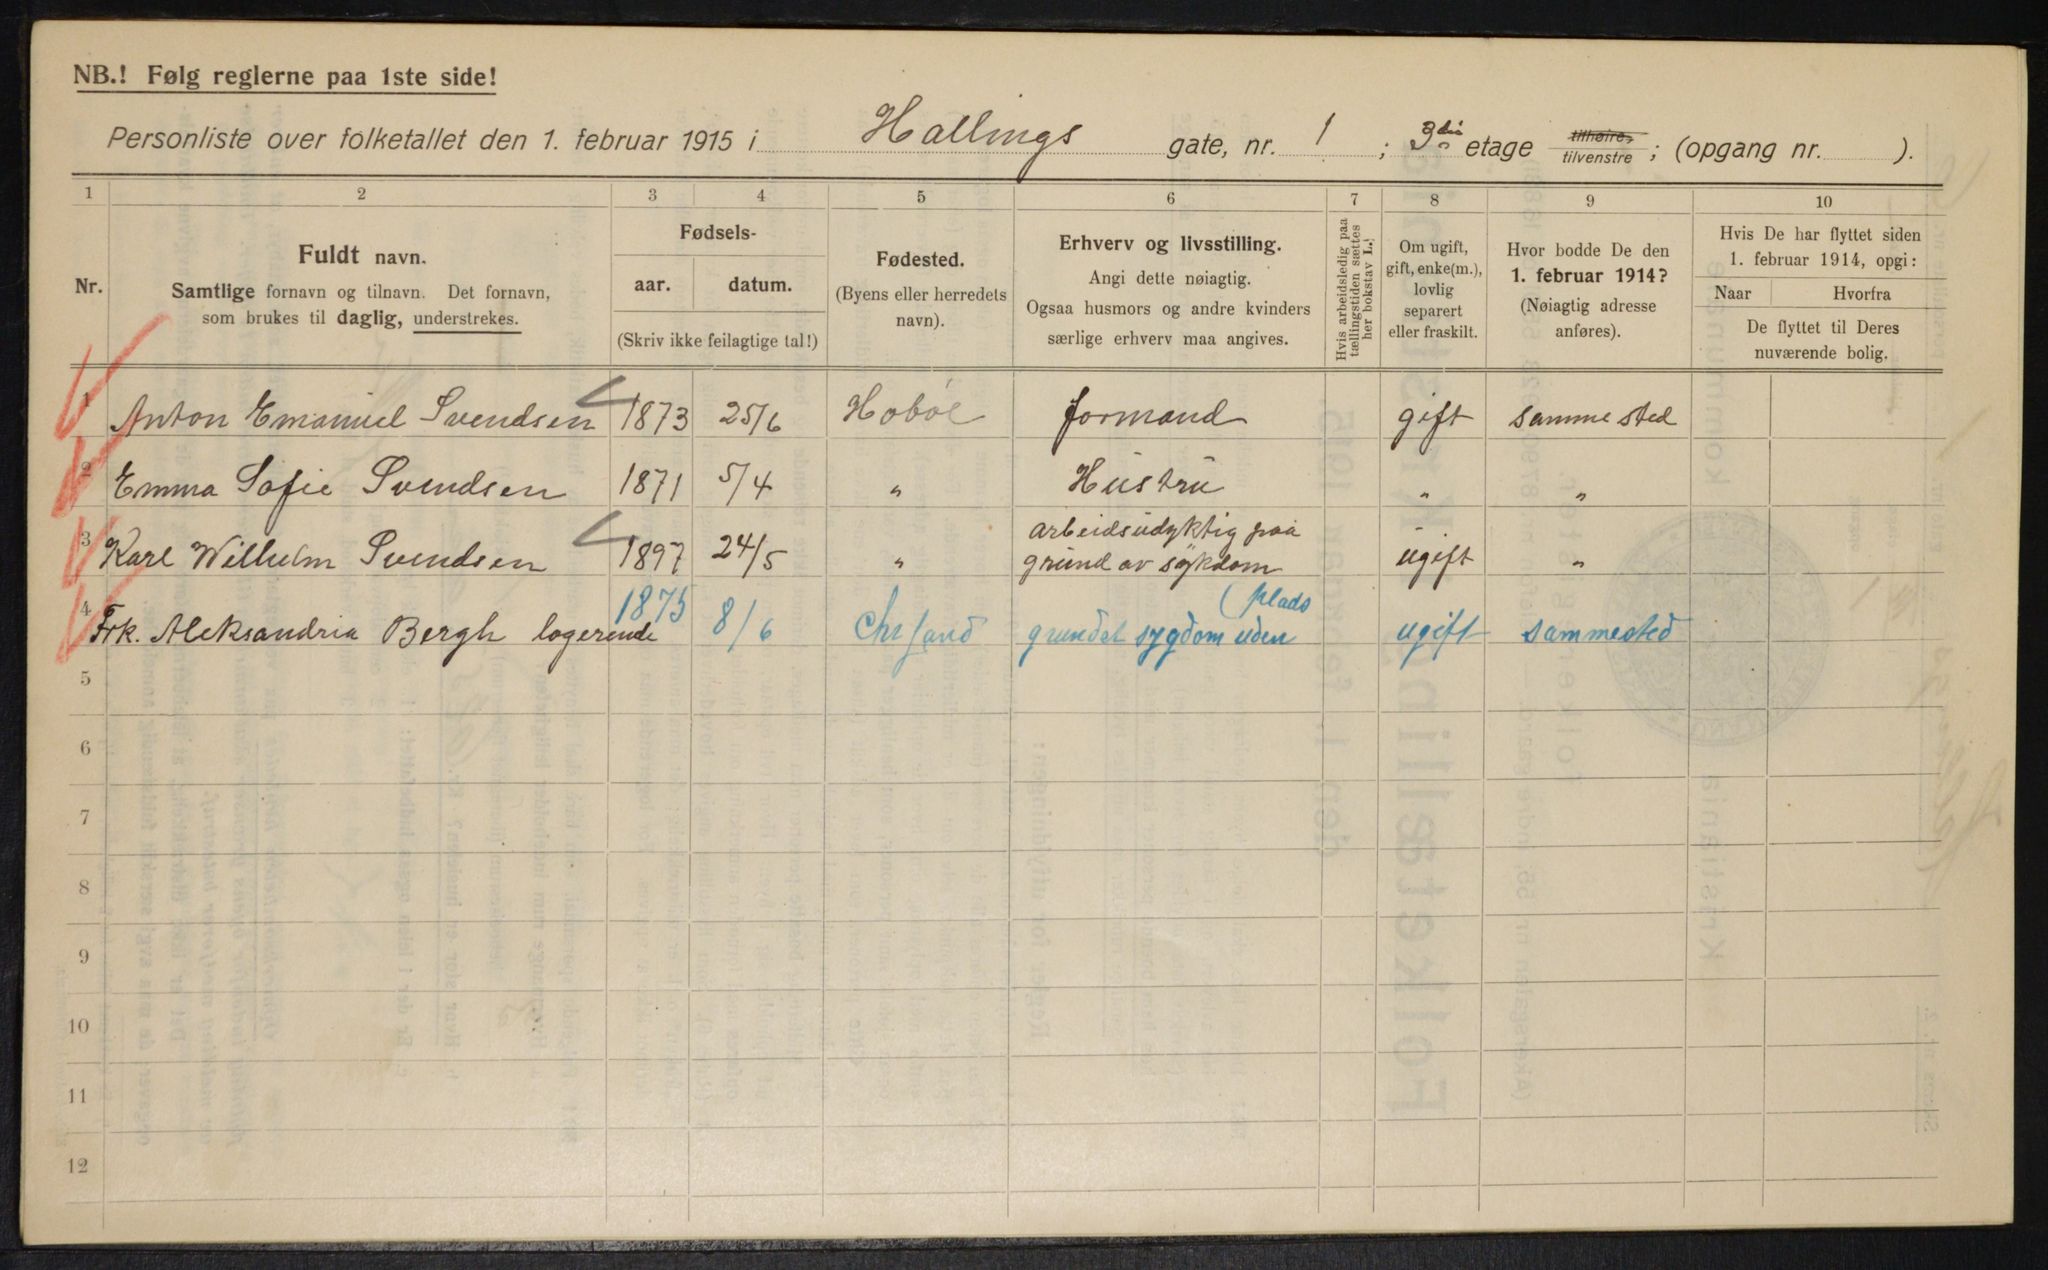 NB.! Følg reglerne paa 1ste side!
Personliste over folketallet den 1. februar 1915 i Hallings gate, nr. 1 ; 3die etage tilhøire, tilvenstre ; (opgang nr. ).
1 2 3 4 5 6 7 8 9 10
Nr.
Fuldt navn.
Samtlige fornavn og tilnavn. Det fornavn,
som brukes til daglig, understrekes.
Fødsels-
aar. datum.
(Skriv ikke feilagtige tal!)
Fødested.
(Byens eller herredets
navn).
Erhverv og livsstilling.
Angi dette nøiagtig.
Ogsaa husmors og andre kvinders
særlige erhverv maa angives.
Hvis arbeidsledig paa
tællingstiden sættes
her bokstav L.
Om ugift,
gift, enke(m.),
lovlig
separert
eller fraskilt.
Hvor bodde De den
1. februar 1914?
(Nøiagtig adresse
anføres).
Hvis De har flyttet siden
1. februar 1914, opgi:
Naar Hvorfra
De flyttet til Deres
nuværende bolig.
1 Anton Emanuel Svendsen 1873 25/6 Hobøl formand gift samme sted
2 Emma Sofie Svendsen 1871 5/4 " Hustru " "
3 Karl Wilhelm Svendsen 1897 24/5 " arbeidsudyktig paa
grund av sykdom ugift "
4 Frk. Aleksandria Bergh logerende 1875 8/6 Chrsand grundet sygdom uden
(plads ugift sammested
5
6
7
8
9
10
11
12